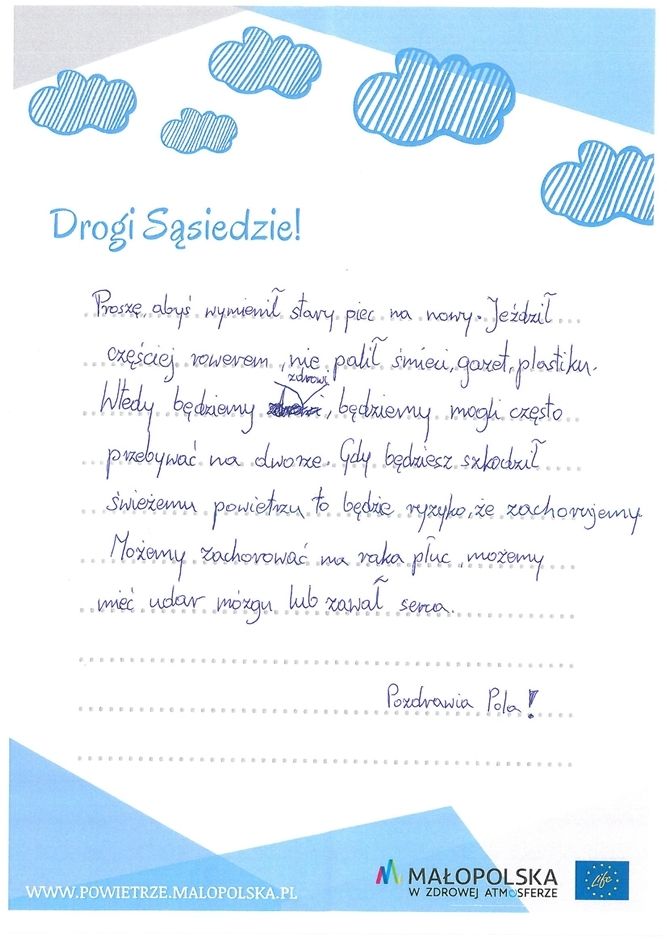 Drogi Sąsiedzie!
Proszę, abyś wymienił stary piec na nowy. Jeździł
częściej rowerem, nie palił śmieci, gazet, plastiku.
zdrowi
Wtedy będziemy, będziemy mogli często
przebywać na dworze. Gdy będziesz szkodził
świeżemu powietrzu to będzie ryzyko, że zachorujemy.
Możemy zachorować na raka płuc, możemy
mieć udar mózgu lub zawał serca.
Pozdrawia Pola!
WWW.POWIETRZE.MALOPOLSKA.PL
MAŁOPOLSKA
W ZDROWEJ ATMOSFERZE
Life